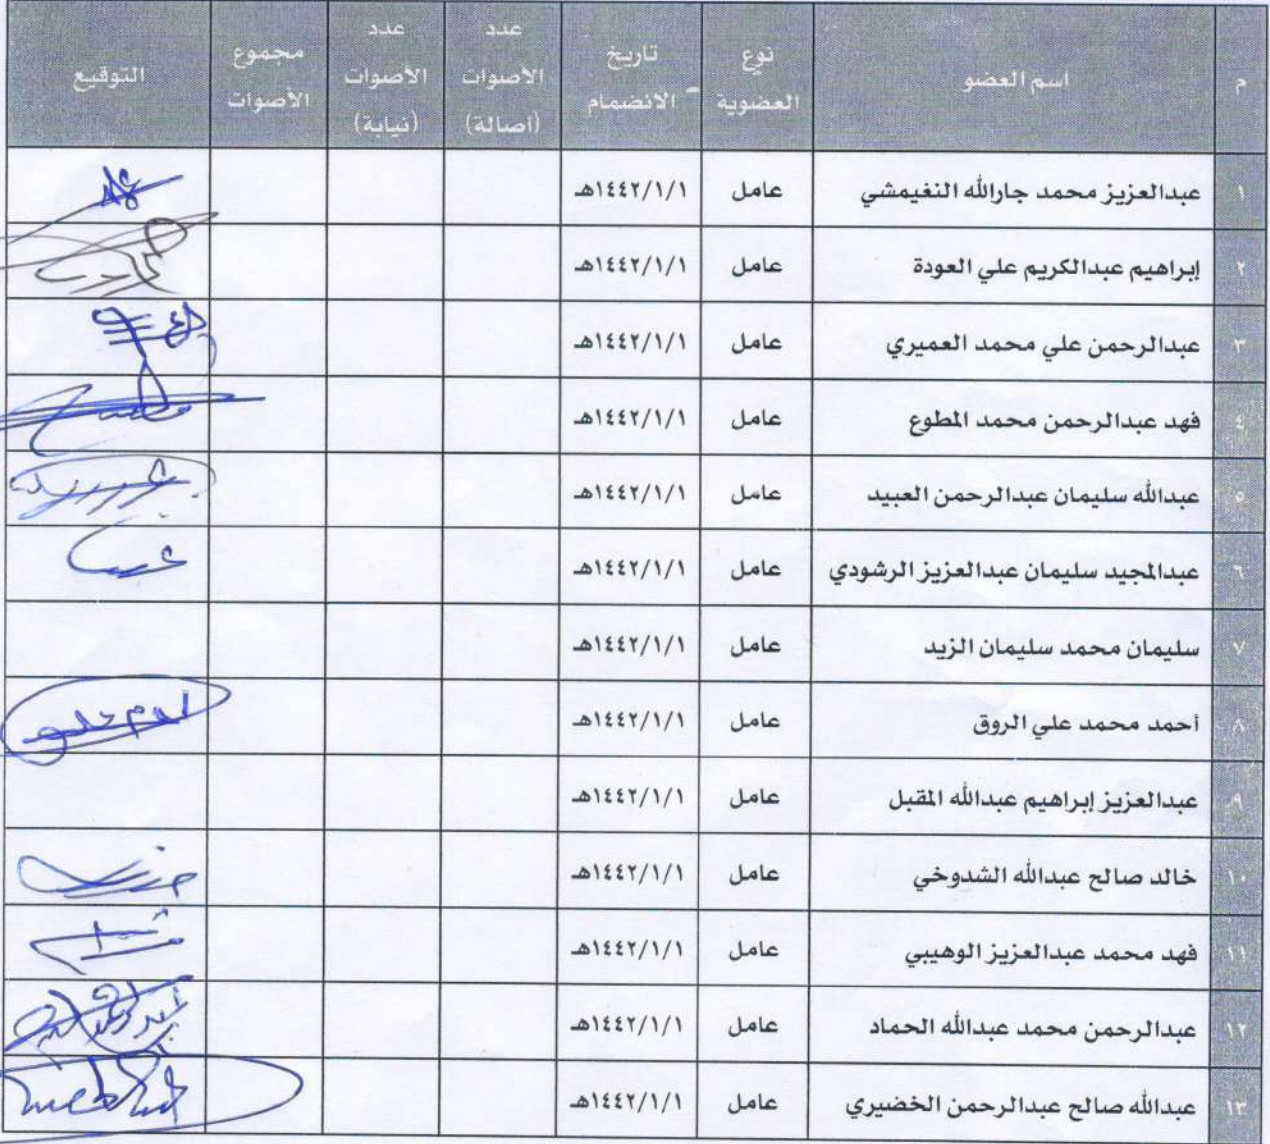 م اسم العضو نوع العضوية تاريخ الانضمام عدد الأصوات (اصالة) عدد الأصوات (نيابة) مجموع الأصوات التوقيع
١ عبدالعزيز محمد جارالله النغيمشي عامل ١٤٤٢/١/١هـ
٢ إبراهيم عبدالكريم علي العودة عامل ١٤٤٢/١/١هـ
٣ عبدالرحمن علي محمد العميري عامل ١٤٤٢/١/١هـ
٤ فهد عبدالرحمن محمد المطوع عامل ١٤٤٢/١/١هـ
٥ عبدالله سليمان عبدالرحمن العبيد عامل ١٤٤٢/١/١هـ
٦ عبدالمجيد سليمان عبدالعزيز الرشودي عامل ١٤٤٢/١/١هـ
٧ سليمان محمد سليمان الزيد عامل ١٤٤٢/١/١هـ
٨ أحمد محمد علي الروق عامل ١٤٤٢/١/١هـ
٩ عبدالعزيز إبراهيم عبدالله المقبل عامل ١٤٤٢/١/١هـ
١٠ خالد صالح عبدالله الشدوخي عامل ١٤٤٢/١/١هـ
١١ فهد محمد عبدالعزيز الوهيبي عامل ١٤٤٢/١/١هـ
١٢ عبدالرحمن محمد عبدالله الحماد عامل ١٤٤٢/١/١هـ
١٣ عبدالله صالح عبدالرحمن الخضيري عامل ١٤٤٢/١/١هـ